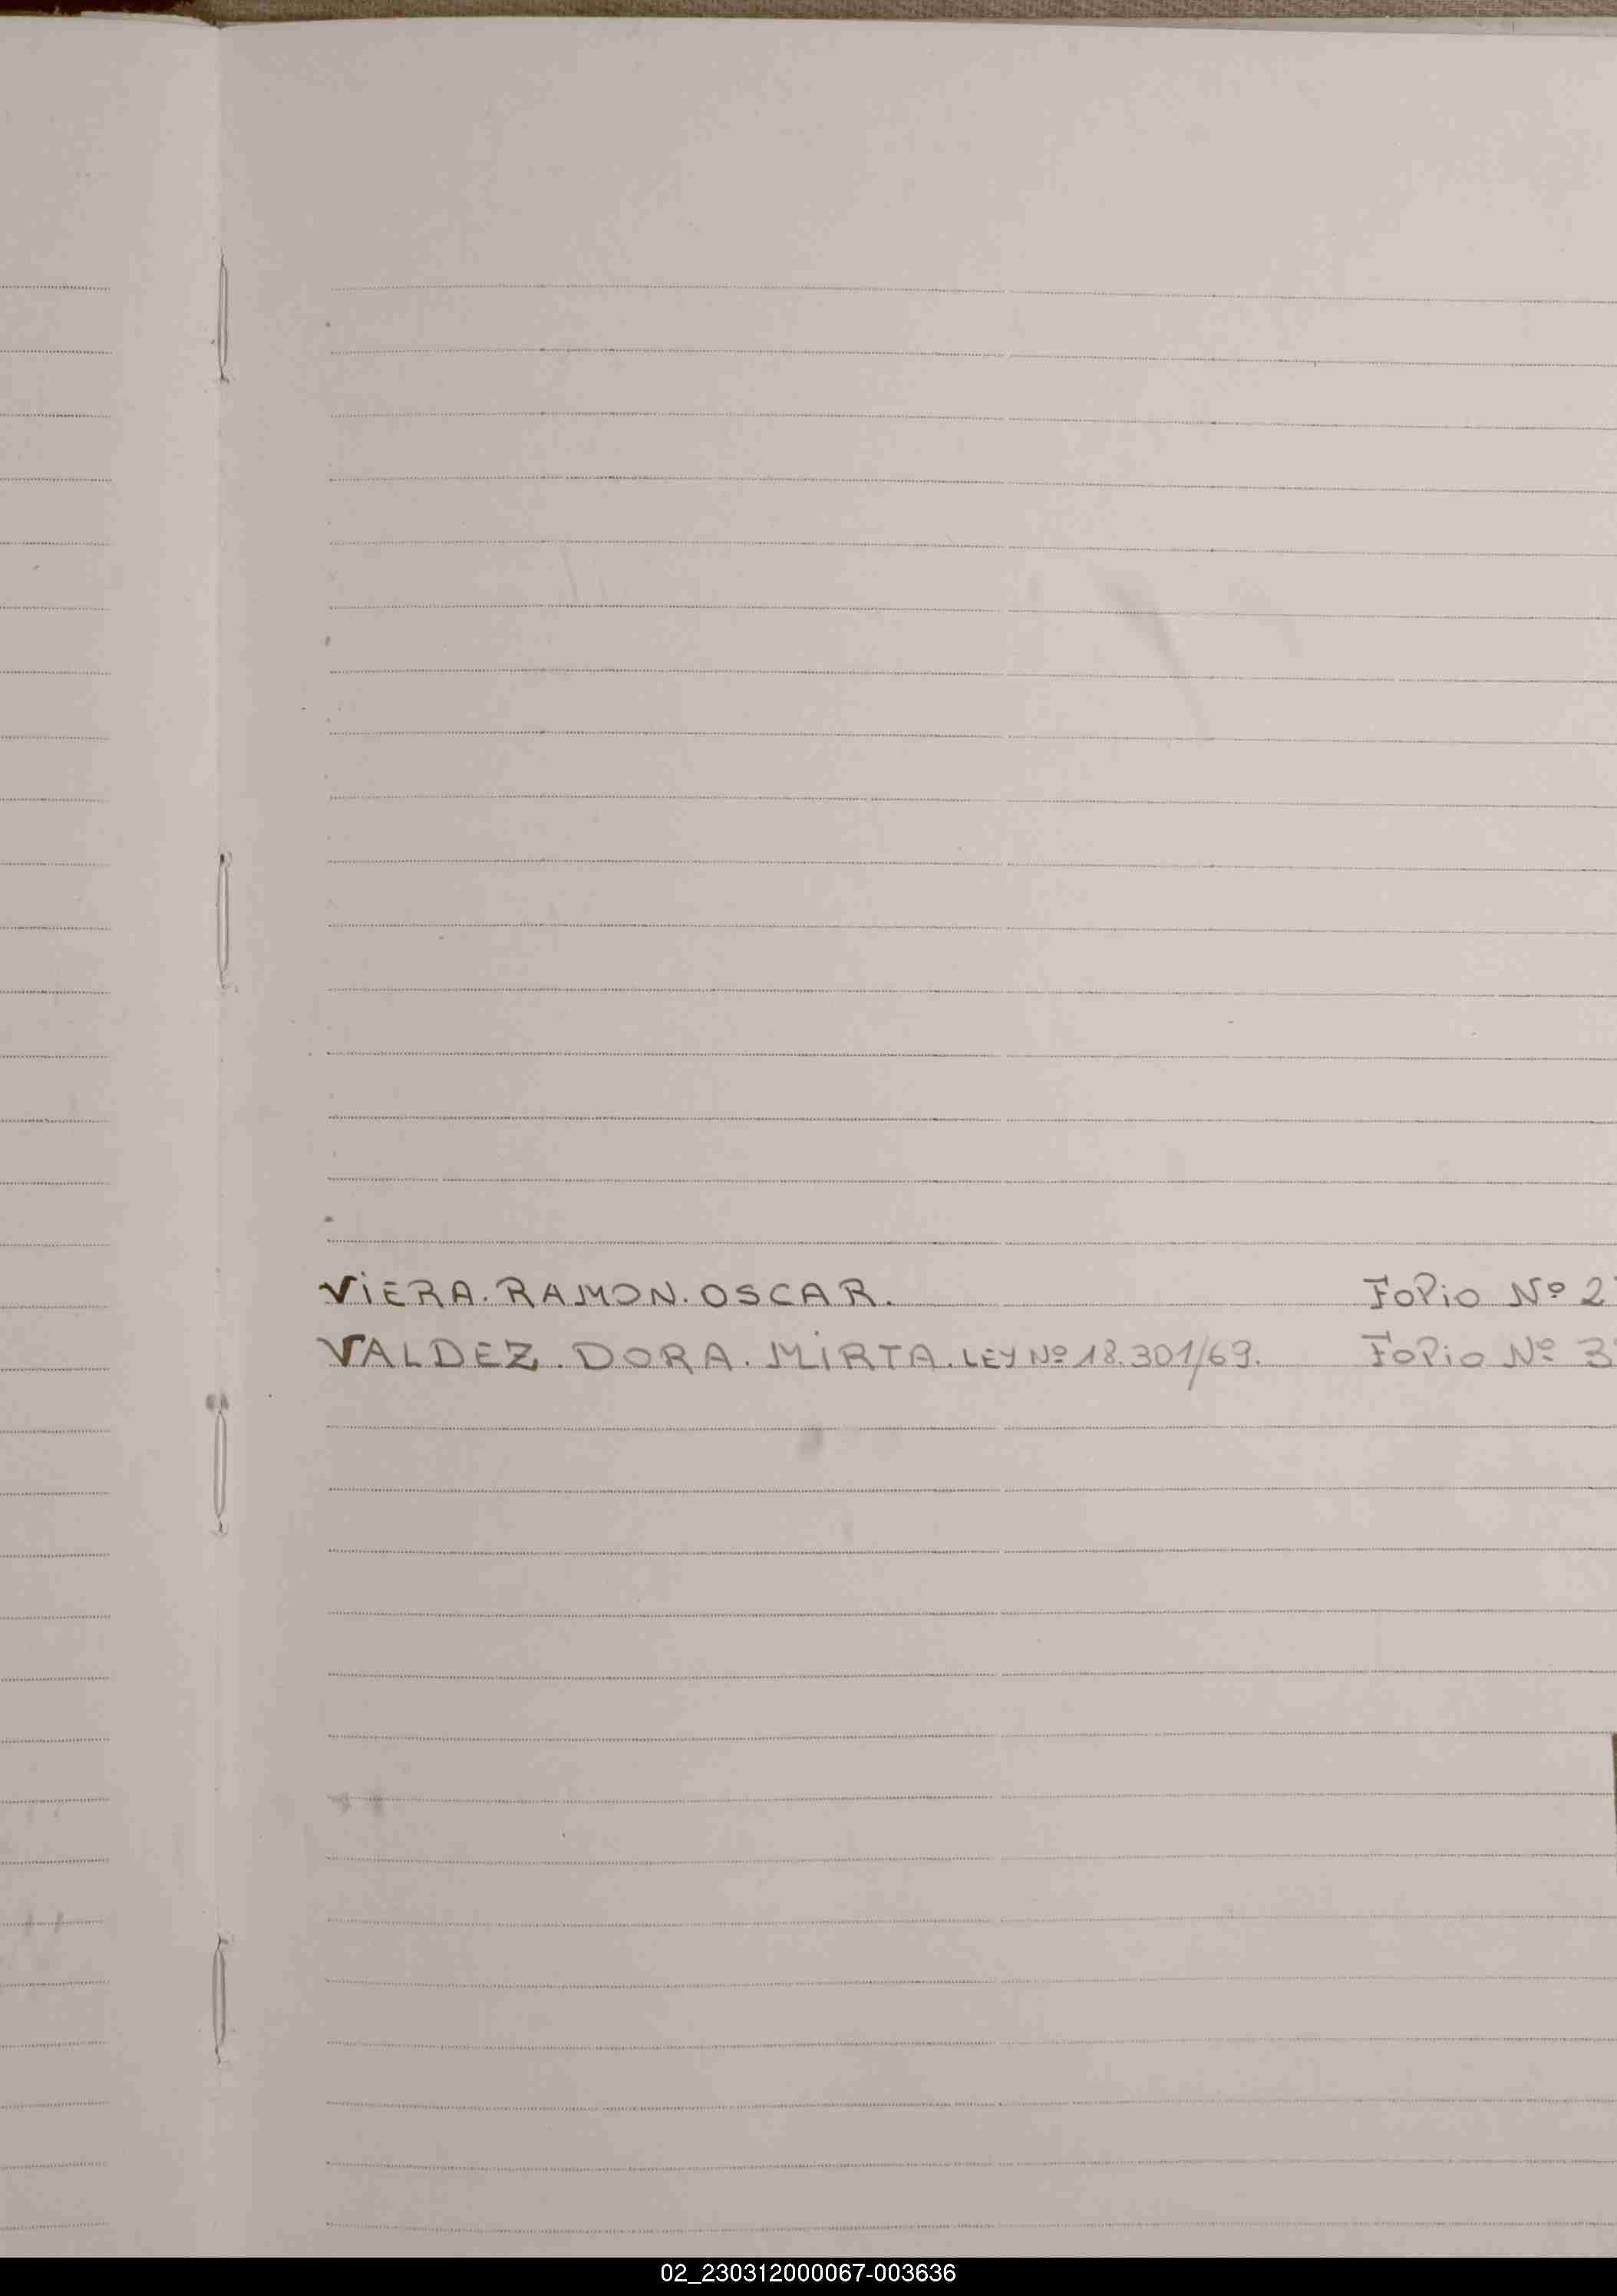 ViERA. RAMON. OSCAR. Folio Nº 2
VALDEZ. DORA. MiRTA. LEY Nº 18.301/69. Folio Nº 3
02_230312000067-003636